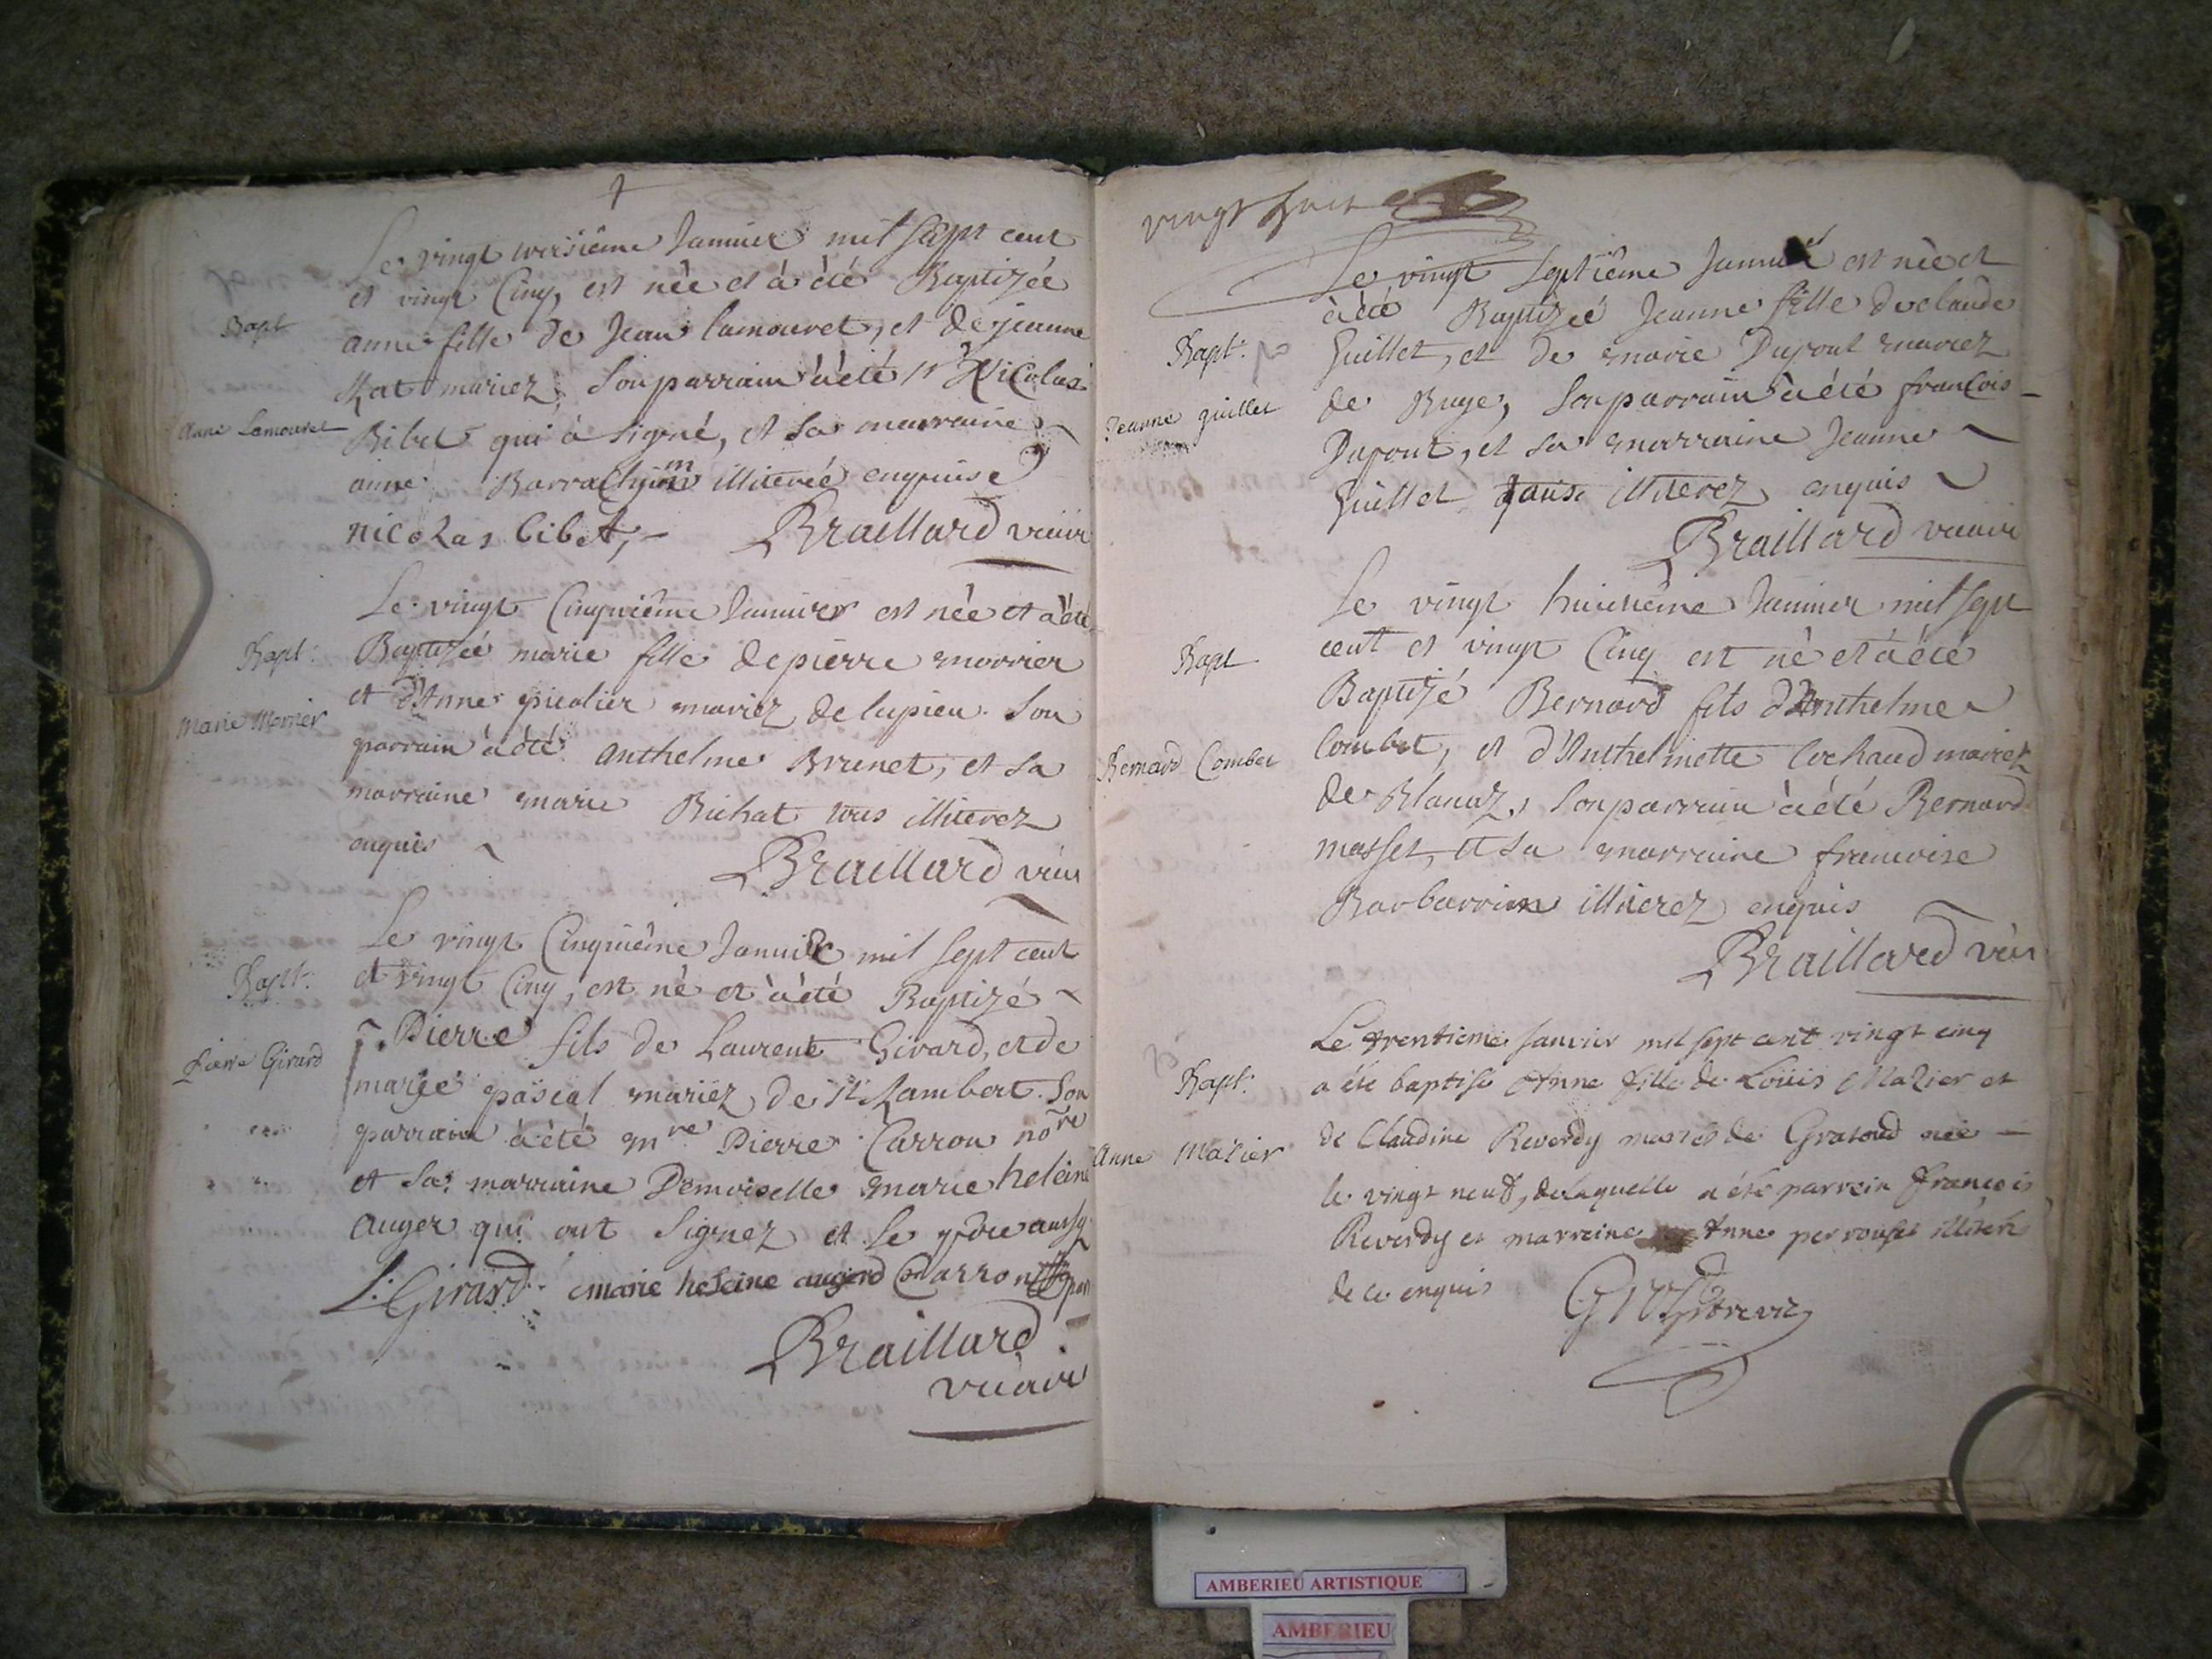 Le vingt troisième Janvier mil sept cent
et vingt Cinq, est née et à été Baptizée
Bapt
anne fille de Jean lamouret, et de jeanne
mariez, Son parrain à été sr Nicolas
Anne Lamouret
Bibet qui à signé, et sa marraine
anne illiterée enquise
nicolas bibet, Braillard vicaire
Le vingt Cinquième Janvier est née et à été
Bapt:
Baptizée marie fille de pierre morrier
et d'Anne picolier mariez de lupieu. Son
Marie Morrier
parrain à été anthelme Brunet, et sa
marraine marie Bichat tous illiterez
enquis
Braillard
Le vingt Cinquième Janvier mil sept cent
Bapt:
et vingt Cinq, est né et à été Baptizé
Pierre fils de Laurent Girard, et de
Pierre Girard
marie pascal mariez de st Rambert. Son
parrain à été mre Pierre Carron nore
et sa marraine Demoiselle marie heleine
auger qui ont signez et le pere aussy
L. Girard marie heleine Carron
Braillard
vicaire
vingt huit
Le vingt septième Janvier est née et
à été Baptizée Jeanne fille de claude
Bapt:
Guillet, et de marie Dupont mariez
Jeanne guillet
de Buge, Son parrain à été françois
Dupont, et sa marraine Jeanne
Guillet tous illiterez enquis
Braillard vicaire
Le vingt huitième Janvier mil sept
Bapt
cent et vingt Cinq est né et à été
Baptizé Bernard fils d'Anthelme
Bernard Combet
Combet, et d'Anthelmette Cochaud mariez
de Blanaz, Son parrain à été Bernard
masset, et sa marraine francoise
Barbarin illiterez enquis
Braillard
Le trentieme Janvier mil sept cent vingt cinq
Bapt:
a été baptisé Anne fille de Loüis Mazier et
Anne Mazier
de Claudine Reverdy mariés de née
le vingt neuf, de laquelle a été parrein François
Reverdy et marreine Anne
de ce enquis